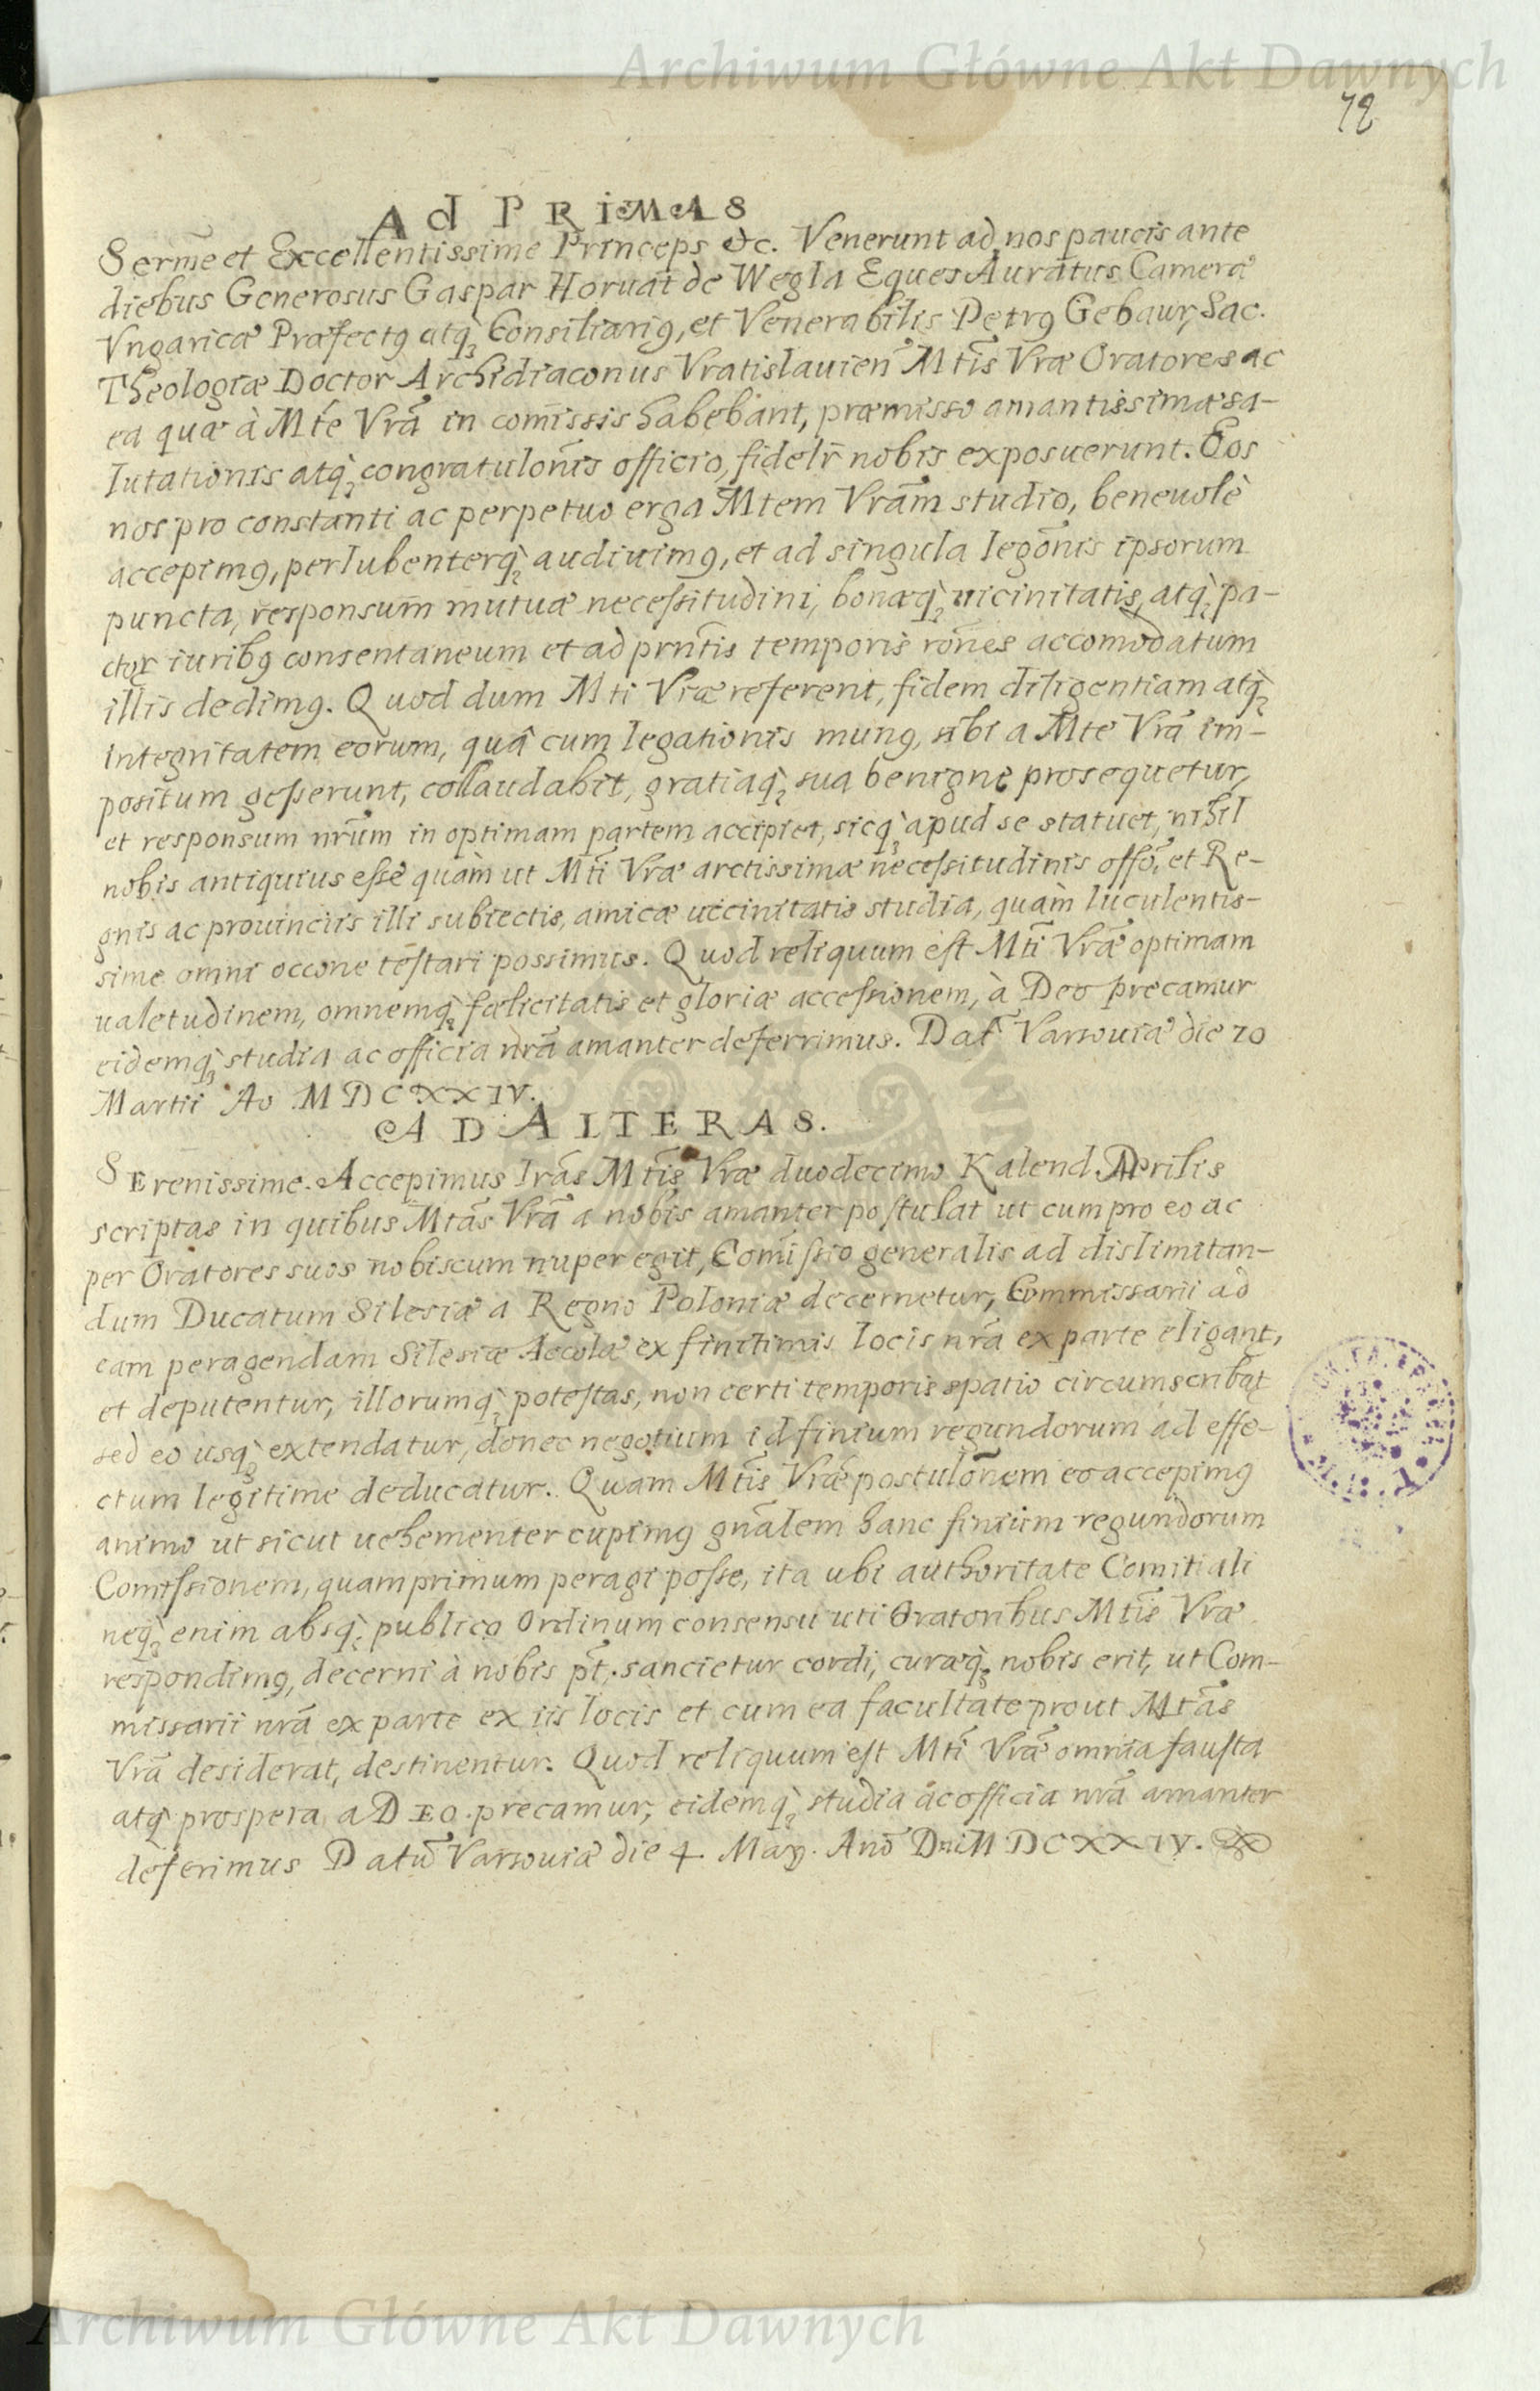 Archiwum Główne Akt Dawnych
72
Ad PRIMAS
Serm̃e et Excellentissime Princeps &c. Venerunt ad nos paucis ante
diebus Generosus Gaspar Horuat de Wegla Eques Auratus Cameræ
Vngaricæ Præfectꝰ atq̃ Consiliariꝰ, et Venerabilis Petrꝰ Gebaur, Sac.
Theologiæ Doctor Archidiaconus Vratislauien̄ Mtĩs Vræ Oratores ac
ea quæ à Mtẽ Vrã in com̃issis habebant, præmisso amantissimæ sa-
lutationis atq̃ congratulõnis officio, fidelr̃ nobis exposuerunt. Eos
nos pro constanti ac perpetuo erga Mtem Vrãm studio, beneuolè
accepimꝰ, perlubenterq̃ audiuimꝰ, et ad singula legõnis ipsorum
puncta, responsum mutuæ necessitudini, bonæq̃ uicinitatis, atq̃ pa-
ctor̃ iuribꝰ consentaneum et ad prñtis temporis rõnes accomodatum
illis dedimꝰ. Quod dum Mti Vræ referent, fidem diligentiam atq̃
integritatem eorum, quâ cum legationis munꝰ, sibi a Mte Vrã im-
positum gesserunt, collaudabit, gratiaq̃ sua benigne prosequetur,
et responsum nrũm in optimam partem accipiet, sicq̃ apud se statuet, nihil
nobis antiquius esse quàm ut Mtĩ Vræ arctissimæ necessitudinis offõi, et Re-
gnis ac prouinciis illi subiectis, amicæ uicinitatis studia, quàm luculentis-
sime omni occone testari possimus. Quod reliquum est Mtĩ Vræ optimam
ualetudinem, omnemq̃ fœlicitatis et gloriæ accessionem, à Deo precamur
eidemq̃ studia ac officia nrã amanter deferrimus. Dat̃ Varsouiæ die 20
Martii Ao MDCXXIV.
AD ALTERAS.
Serenissime. Accepimus lrãs Mtĩs Vræ duodecimo Kalend. Aprilis
scriptas in quibus Mtãs Vrã a nobis amanter postulat ut cum pro eo ac
per Oratores suos nobiscum nuper egit, Com̃issio generalis ad dislimitan-
dum Ducatum Silesiæ a Regno Poloniæ decernetur, Commissarii ad
eam peragendam Silesiæ Accolæ ex finitimis locis nrã ex parte eligant,
et deputentur, illorumq̃ potestas, non certi temporis spatio circumscribat
sed eo usq̃ extendatur, donec negotium id finium regundorum ad effe-
ctum legitime deducatur. Quam Mtĩs Vræ postulõnem eo accepimꝰ
animo ut sicut uehementer cupimꝰ gnãlem hanc finium regundorum
Comissionem, quamprimum peragi posse, ita ubi authoritate Comitiali
neq̃ enim absq̃ publico Ordinum consensu uti Oratoribus Mtĩs Vræ
respondimꝰ, decerni à nobis pt̃. sancietur cordi, curæq̃ nobis erit, ut Com-
missarii nrã ex parte ex iis locis et cum ea facultate prout Mtãs
Vrã desiderat, destinentur. Quod reliquum est Mtĩ Vræ omnia fausta
atq̃ prospera a DEO precamur, eidemq̃ studia ac officia nrã amanter
deferimus Datũ Varsouiæ die 4 May. Anõ Dni MDCXXIV.
Archiwum Główne Akt Dawnych